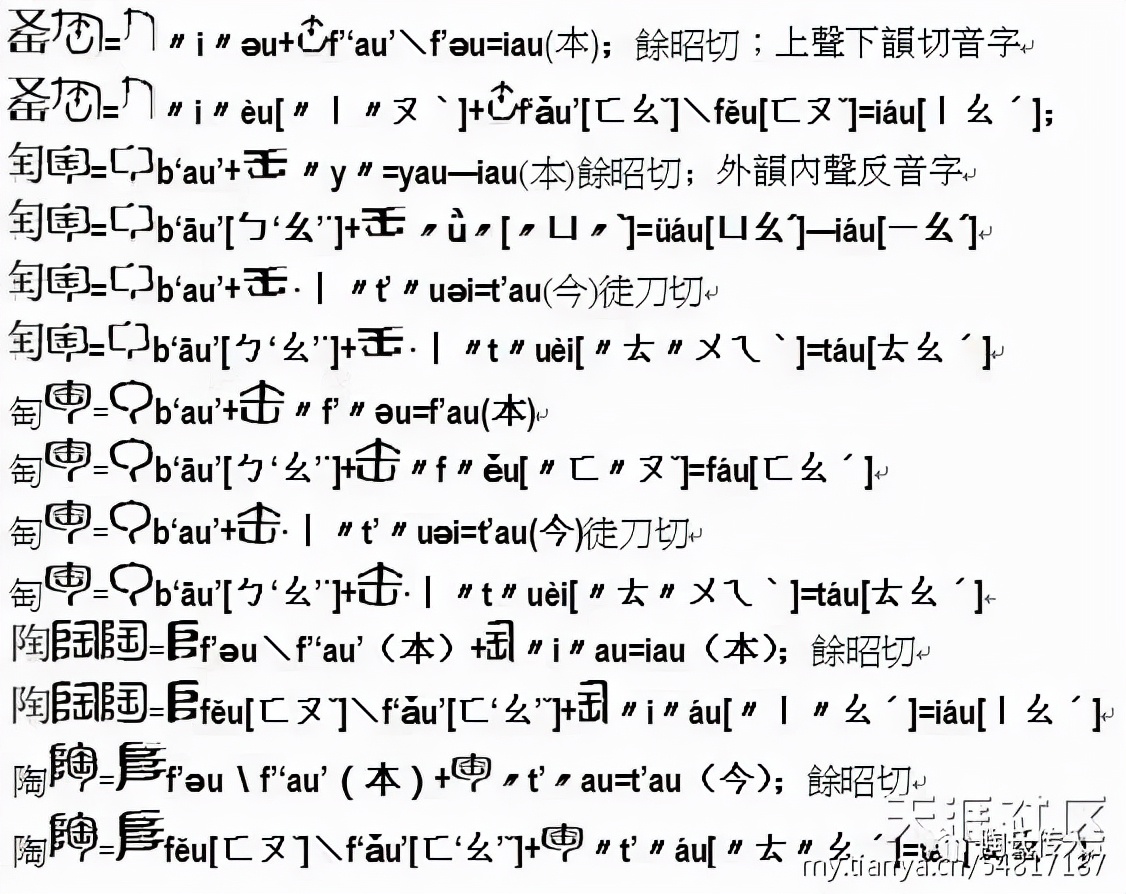 = 〃i〃əu+f'‘au'＼f'əu=iau(本)；餘昭切；上聲下韻切音字
= 〃i〃èu[〃丨〃ㄡˋ]+f‘ǎu'[ㄈㄠˇ]＼fěu[ㄈㄡˇ]=iáu[丨ㄠˊ]；
=b‘au'+ 〃y〃=yau—iau(本)餘昭切；外韻內聲反音字
=b‘āu'[ㄅ‘ㄠ'¨]+ 〃ǜ〃[〃ㄩ〃ˋ]=üáu[ㄩㄠˊ]—iáu[一ㄠˊ]
=b‘au'+·丨 〃t'〃uəi=t'au(今)徒刀切
=b‘āu'[ㄅ‘ㄠ'¨]+·丨 〃t〃uèi[〃ㄊ〃ㄨㄟˋ]=táu[ㄊㄠˊ]
匋=b‘au'+〃f'〃əu=f'au(本)
匋=b‘āu'[ㄅ‘ㄠ'¨]+〃f〃ěu[〃ㄈ〃ㄡˇ]=fáu[ㄈㄠˊ]
匋=b‘au'+·丨 〃t'〃uəi=t'au(今)徒刀切
匋=b‘āu'[ㄅ‘ㄠ'¨]+·丨 〃t〃uèi[〃ㄊ〃ㄨㄟˋ]=táu[ㄊㄠˊ]
陶=f'əu＼f'‘au'（本）+〃i〃au=iau（本）；餘昭切
陶=fěu[ㄈㄡˇ]＼f‘ǎu'[ㄈ‘ㄠ'ˇ]+〃i〃áu[〃丨〃ㄠˊ]=iáu[丨ㄠˊ]
陶=f'əu \ f'‘au'（本）+〃t'〃au=t'au（今）；餘昭切
陶=fěu[ㄈㄡˇ]＼f‘ǎu'[ㄈ‘ㄠ'ˇ]+〃t'〃áu[〃ㄊ〃ㄠˊ]
天涯社区
my.tianya.cn/54817187